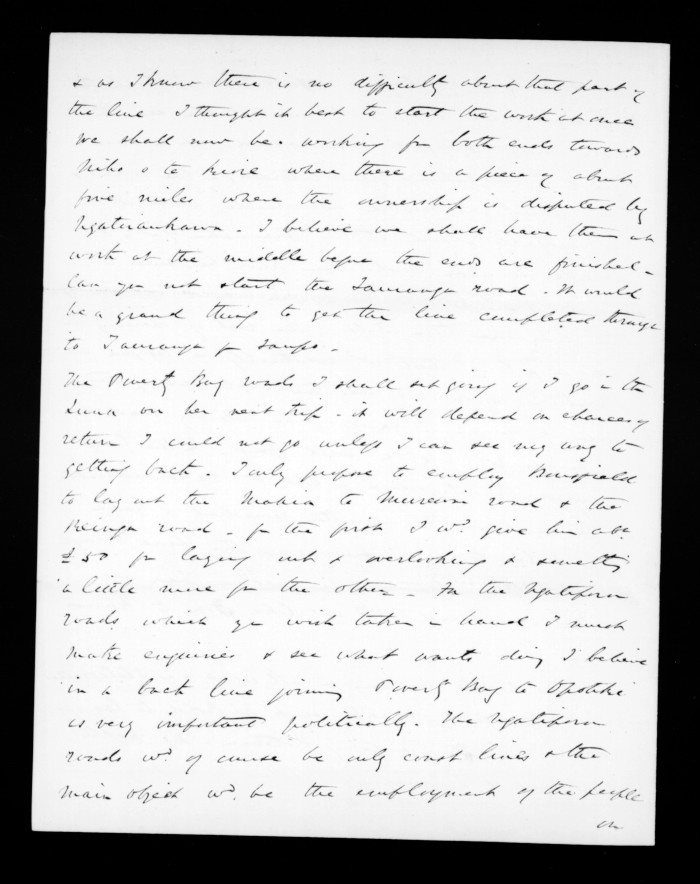 & as I know there is no difficulty about that part of
the line I thought it best to start the work at once
we shall now be working from both ends towards
Niho o te kiore where there is a piece of about
five miles where the ownership is disputed by
Ngatiraukawa. I believe we shall have them at
work at the middle before the ends are finished -
Can you not start the Tauranga road. It would
be a grand thing to get the line completed through
to Tauranga fr Taupo -
The Poverty Bay roads I shall set going if I go in the
Luna on her next trip - it will depend on chances of
return I could not go unless I can see my way to
getting back. I only propose to employ
to lay out the Mahia to road & the
Reinga road - for the first I wd. give him abt.
£50 for laying out & overlooking & something
a little more for the other - For the Ngatiporou
roads which you wish taken in hand I must
make enquiries & see what wants doing I believe
in a back line joining Poverty Bay to Opotiki
as very important politically. The Ngatiporou
roads wd. of course be only coast lines & the
main object wd. be the employment of the people
on